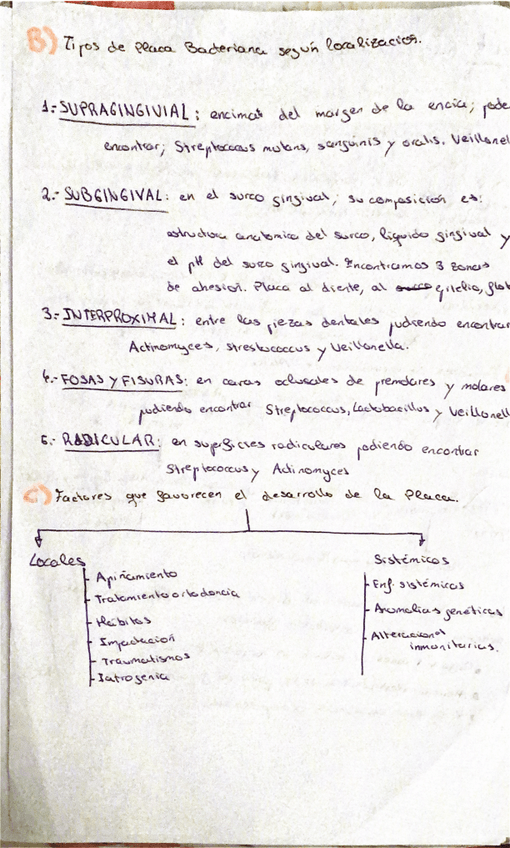 B) Tipos de Placa Bacteriana según localización.
1.- SUPRAGINGIVIAL: encimat del margen de la encia; pode
encontrar; Streptococcus mutans, sanguinis y oralis. Veillonel
2.- SUBGINGIVAL: en el surco gingival; su composición es:
estructura anatomica del surco, líquido gingival y
el pH del surco gingival. Encontramos 3 zonas
de ahesion. Placa al diente, al epitelio, flot
3.- INTERPROXIMAL: entre las piezas dentales pudiendo encontrar
Actinomyces, streptococcus y Veillonella.
4.- FOSAS Y FISURAS: en caras oclusales de premolares y molares
pudiendo encontrar Streptococcus, Lactobacillus y Veillonell
5.- RADICULAR: en superficies radiculares podiendo encontrar
Streptococcus y Actinomyces
C) Factores que favorecen el desarrollo de la Placa.
Locales
- Apiñamiento
- Tratamiento ortodoncia
- Hábitos
- Impactacion
- Traumatismos
- Iatrogenia
Sistémicos
- Enf. sistémicas
- Anomalias genéticas
- Alteraciones
inmunitarias.